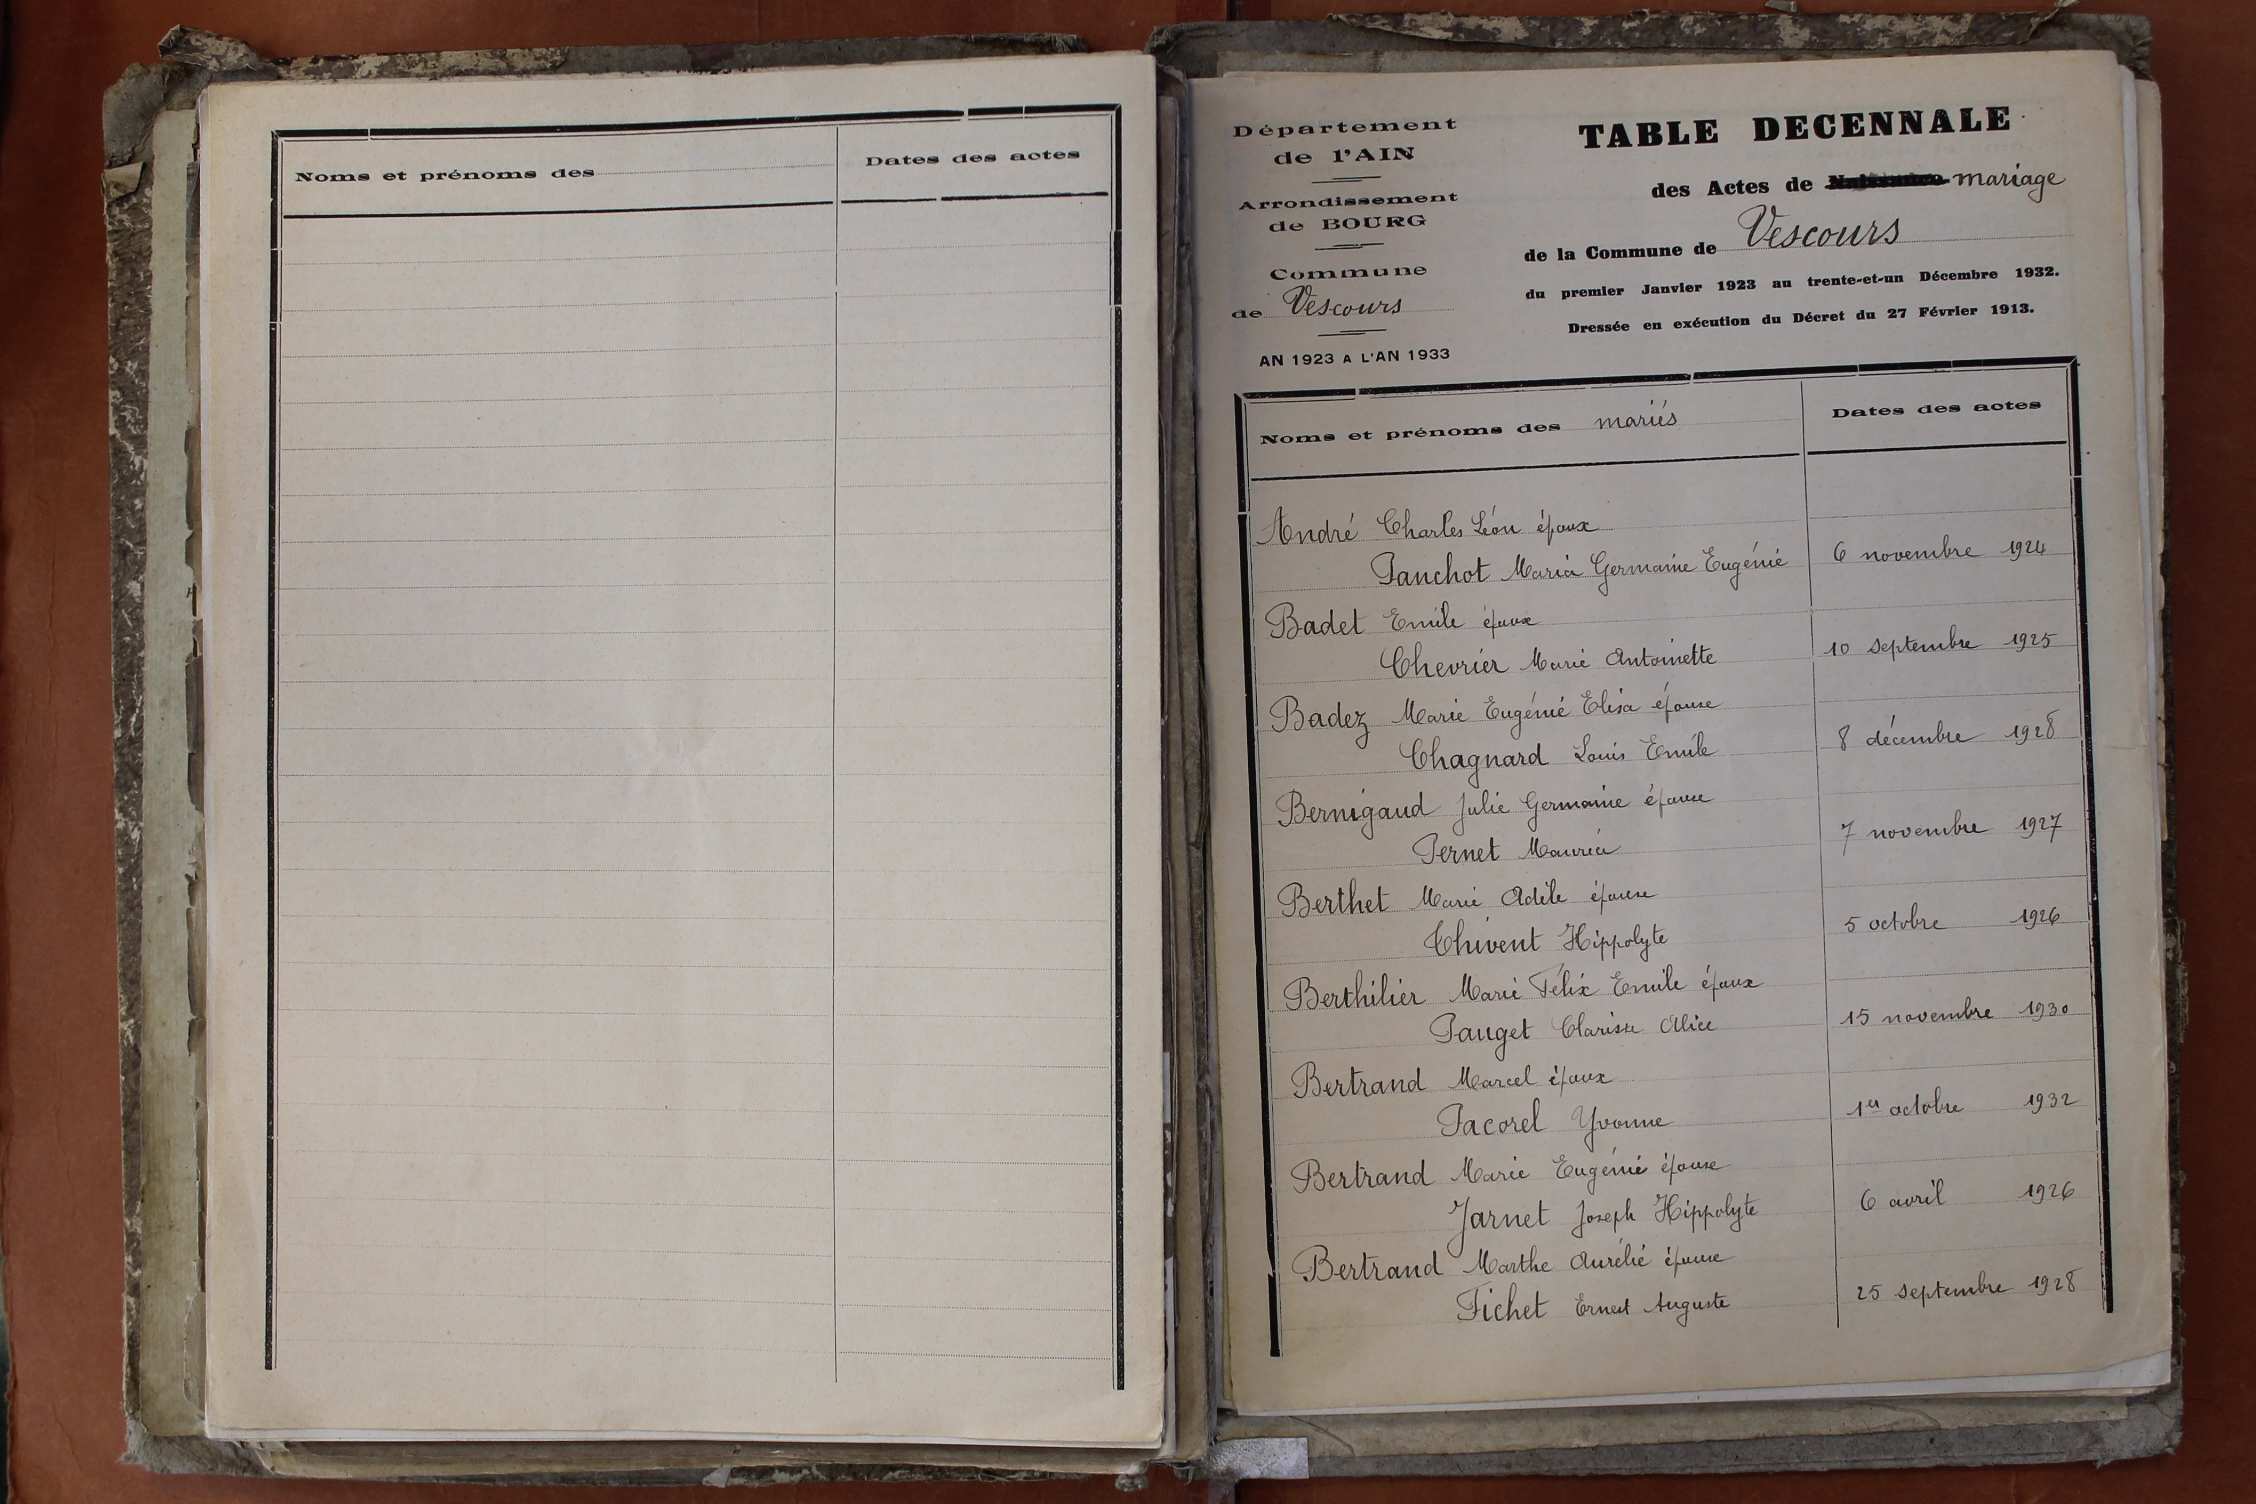 Noms et prénoms des
Dates des actes
Département
de l'AIN
Arrondissement
de BOURG
Commune
de Vescours
AN 1923 A L'AN 1933
TABLE DECENNALE
des Actes de Naissance mariage
de la Commune de Vescours
du premier Janvier 1923 au trente-et-un Décembre 1932.
Dressée en exécution du Décret du 27 Février 1913.
Noms et prénoms des mariés
Dates des actes
André Charles Léon époux
Panchot Maria Germaine Eugénie 6 novembre 1924
Badet Emile époux
Chevrier Marie Antoinette 10 septembre 1925
Badez Marie Eugénie Elisa épouse
Chagnard Louis Emile 8 décembre 1928
Bernigaud Julie Germaine épouse
Pernet Maurice 7 novembre 1927
Berthet Marie Adèle épouse
Chivent Hippolyte 5 octobre 1926
Berthilier Marie Félix Emile époux
Pauget Clarisse Alice 15 novembre 1930
Bertrand Marcel époux
Pacorel Yvonne 1er octobre 1932
Bertrand Marie Eugénie épouse
Jarnet Joseph Hippolyte 6 avril 1926
Bertrand Marthe Aurélie épouse
Fichet Ernest Auguste 25 septembre 1928